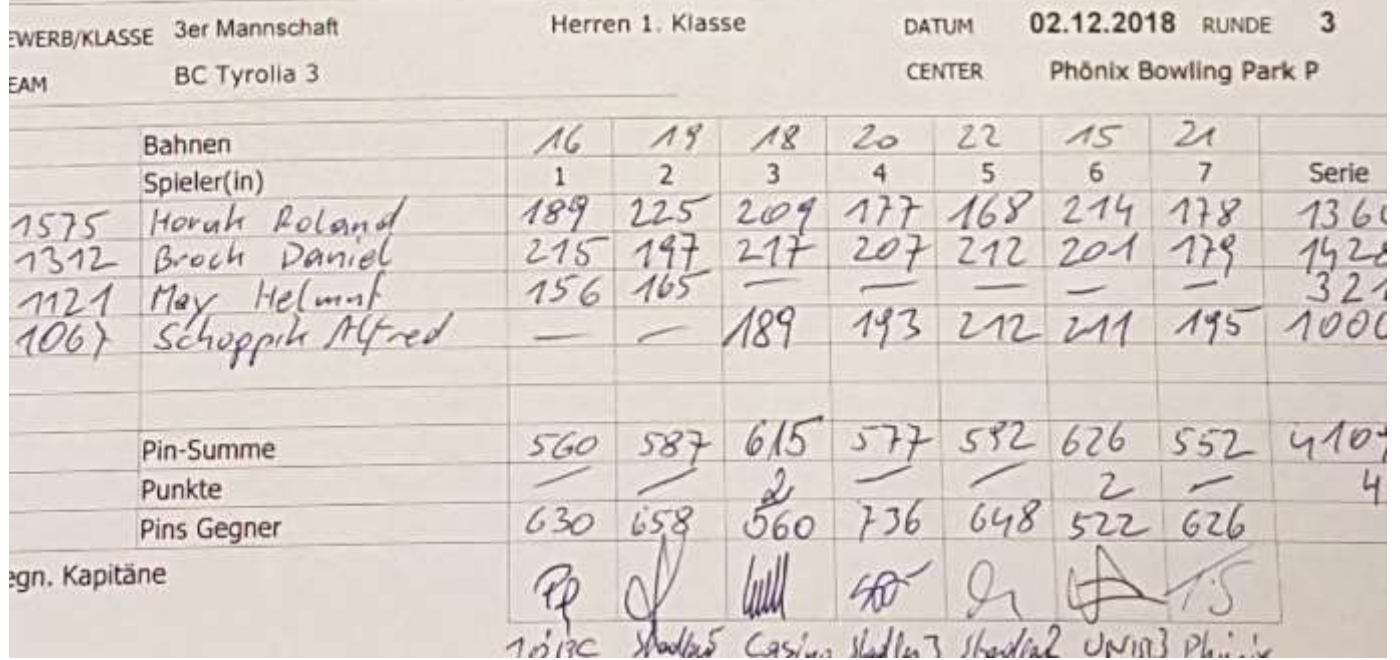 EWERB/KLASSE 3er Mannschaft Herren 1. Klasse DATUM 02.12.2018 RUNDE 3
EAM BC Tyrolia 3 CENTER Phönix Bowling Park P
Bahnen 16 19 18 20 22 15 21
Spieler(in) 1 2 3 4 5 6 7 Serie
1575 Horak Roland 189 225 209 177 168 214 178 1360
1312 Broch Daniel 215 197 217 207 212 201 179 1428
1121 May Helmut 156 165 — — — — — 321
1067 Schoppik Alfred — — 189 193 212 211 195 1000
Pin-Summe 560 587 615 577 592 626 552 4109
Punkte — — 2 — — 2 — 4
Pins Gegner 630 658 560 736 648 522 626
egn. Kapitäne
Casino